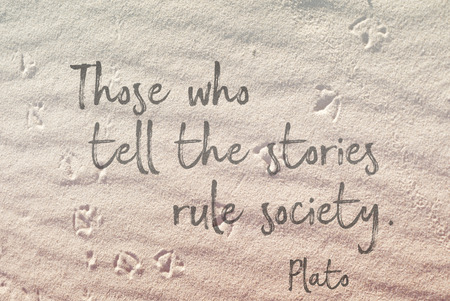 Those who
tell the stories
rule society.
Plato